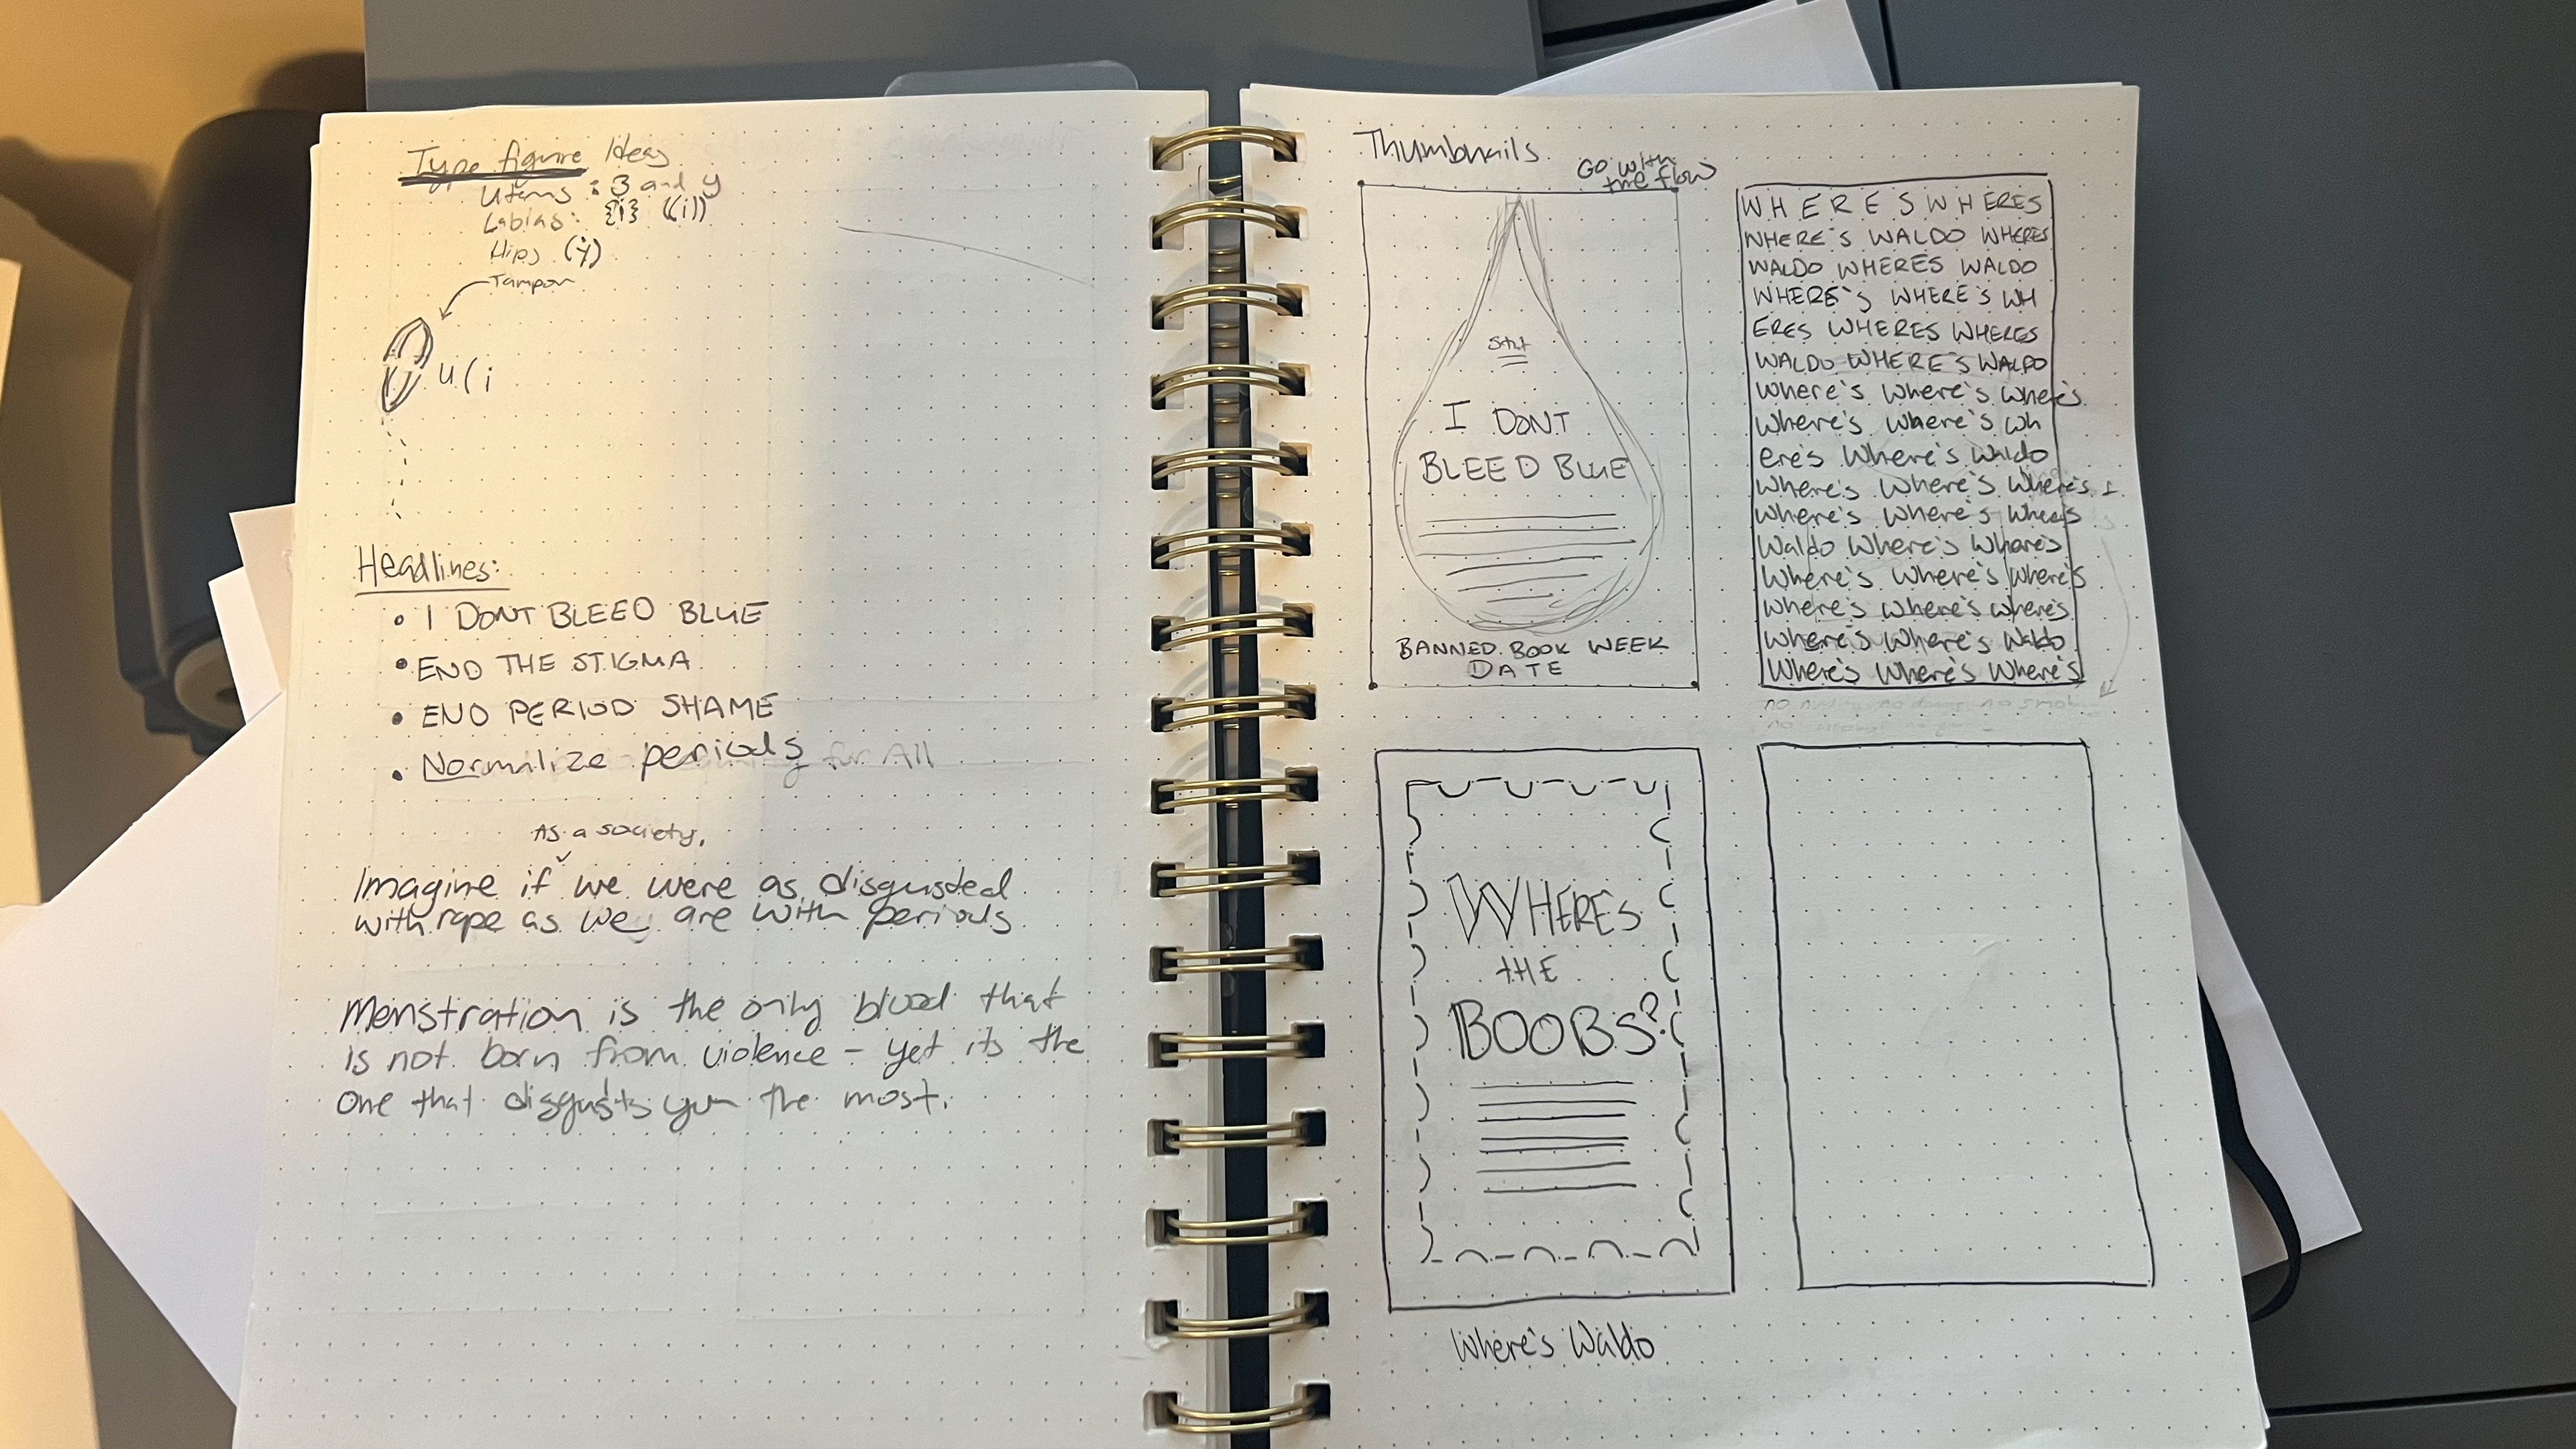 Type figure Ideas
Uterus : 3 and y
Labias: {i} ((i))
Hips (y)
Tampon
u ( i
Headlines:
• I DONT BLEED BLUE
• END THE STIGMA
• END PERIOD SHAME
• Normalize periods for All
As a society,
Imagine if we were as disgusted
with rape as we are with periods
Menstration is the only blood that
is not born from violence - yet its the
one that disgusts you the most.
Thumbnails
GO with
the flow
I DONT
BLEED BLUE
BANNED BOOK WEEK
DATE
WHERESWHERES
WHERE'S WALDO WHERES
WALDO WHERES WALDO
WHERE'S WHERE'S WH
ERES WHERES WHERES
WALDO WHERE'S WALDO
Where's Where's Where's
Where's Where's Wh
ere's Where's Waldo
Where's Where's Where's
Where's Where's Where's
Waldo Where's Where's
Where's Where's Where's
Where's Where's Where's
Where's Where's Waldo
Where's Where's Where's
WHERES
THE
BOOBS?
Where's Waldo